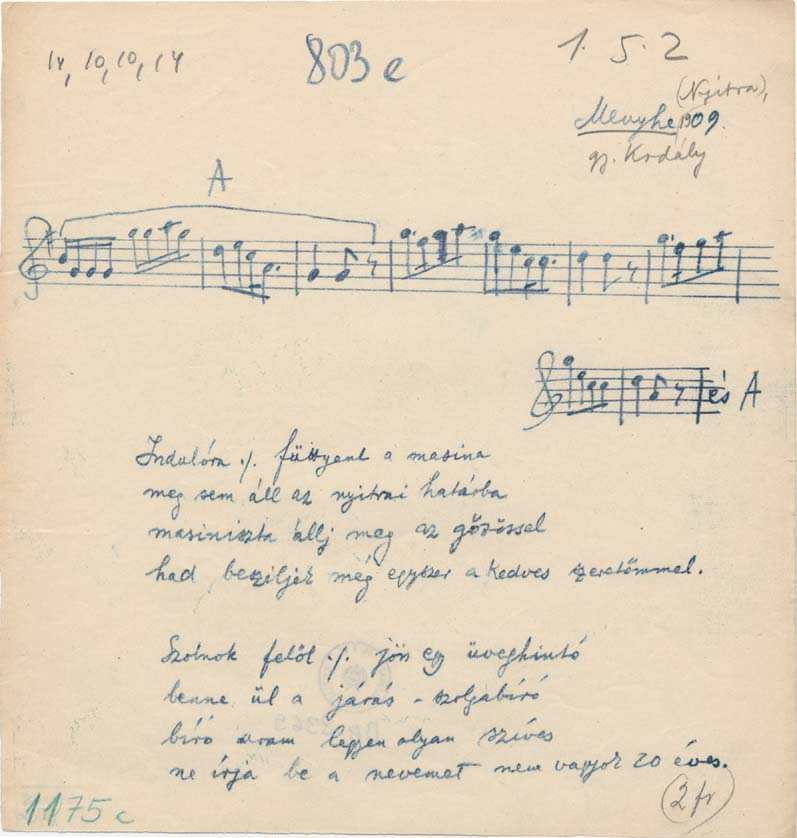 14, 10, 10, 14
803 e
1. 5. 2
(Nyitra),
Menyhe, 1909.
gy. Kodály
A
és A
Indulóra ./. füttyent a masina
meg sem áll az nyitrai határba
masiniszta állj meg az gőzössel
had besziljek még egyszer a kedves szeretőmmel.
Szolnok felől ./. jön egy üveghintó
benne ül a járás-szolgabíró
bíró uram legyen olyan szíves
ne írja be a nevemet nem vagyok 20 éves.
1175 c
2 fr